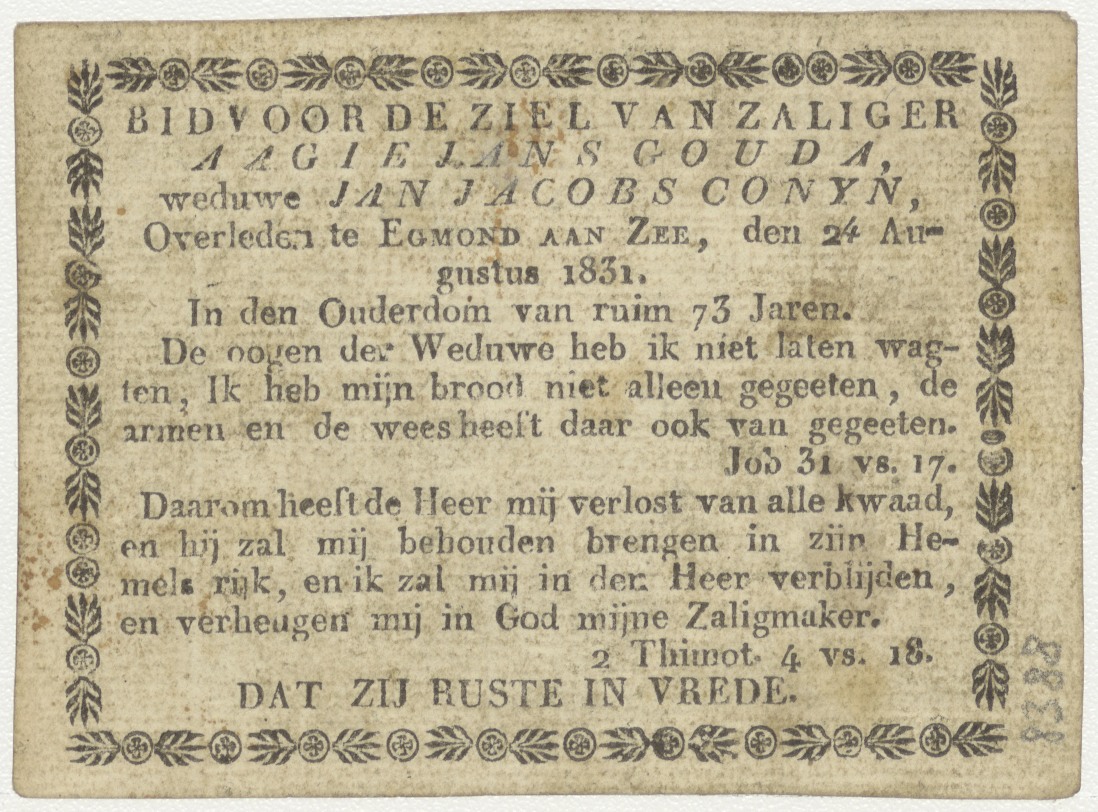 BID VOOR DE ZIEL VAN ZALIGER
AAGIE JANS GOUDA,
weduwe JAN JACOBS CONYN,
Overleden te EGMOND AAN ZEE, den 24 Au-
gustus 1831.
In den Ouderdom van ruim 73 Jaren.
De oogen der Weduwe heb ik niet laten wag-
ten, Ik heb mijn brood niet alleen gegeeten, de
armen en de wees heeft daar ook van gegeeten.
Job 31 vs. 17.
Daarom heeft de Heer mij verlost van alle kwaad,
en hij zal mij behouden brengen in zijn He-
mels rijk, en ik zal mij in den Heer verblijden,
en verheugen mij in God mijne Zaligmaker.
2 Thimot. 4 vs. 18.
DAT ZIJ RUSTE IN VREDE.